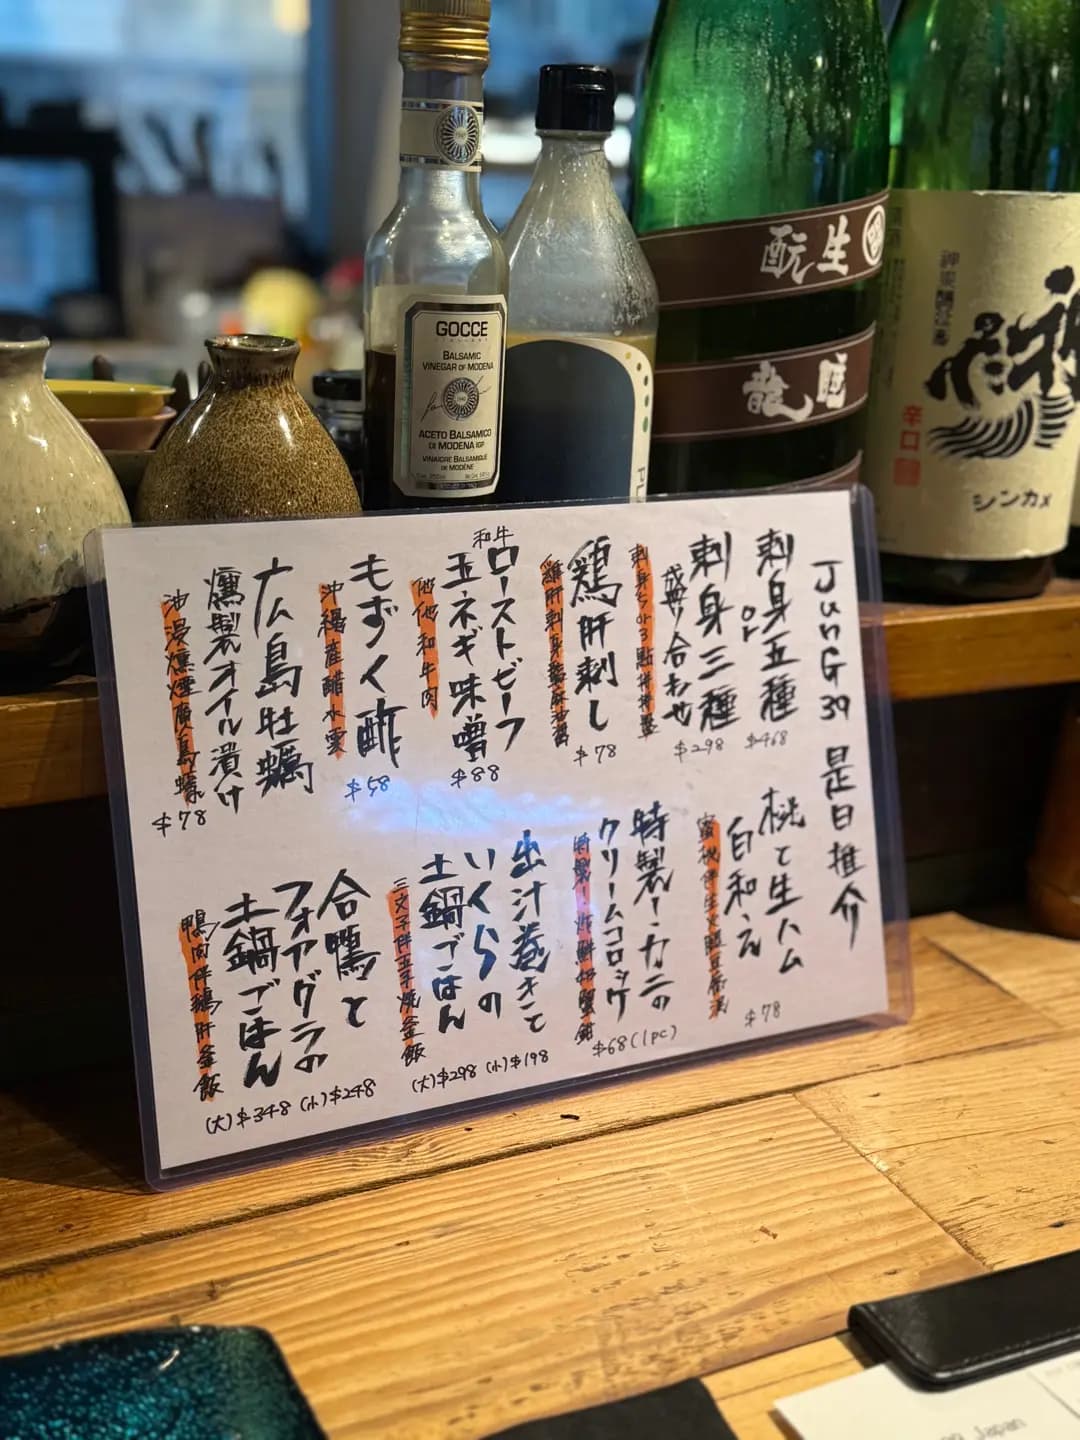 JunG 39 是日推介
刺身五種
or
$468
刺身三種
盛り合わせ
$298
刺身5or3點伴拼盤
鶏肝刺し
$78
和牛
ローストビーフ
玉ネギ味噌
$88
他他和牛肉
もずく酢
$58
沖繩產醋水雲
広島牡蠣
燻製オイル漬け
油浸燻煙廣島蠔
$78
桃と生ハム
白和え
$78
特製!カニの
クリームコロッケ
$68(1pc)
出汁巻きと
いくらの
土鍋ごはん
(大)$298 (小)$198
三文子伴玉子燒釜飯
合鴨と
フォアグラの
土鍋ごはん
(大)$348 (小)$248
鴨肉伴鵝肝釜飯
GOCCE
BALSAMIC
VINEGAR OF MODENA
ACETO BALSAMICO
DI MODENA IGP
VINAIGRE BALSAMIQUE
DE MODÈNE
生酛
辛口
シンカメ